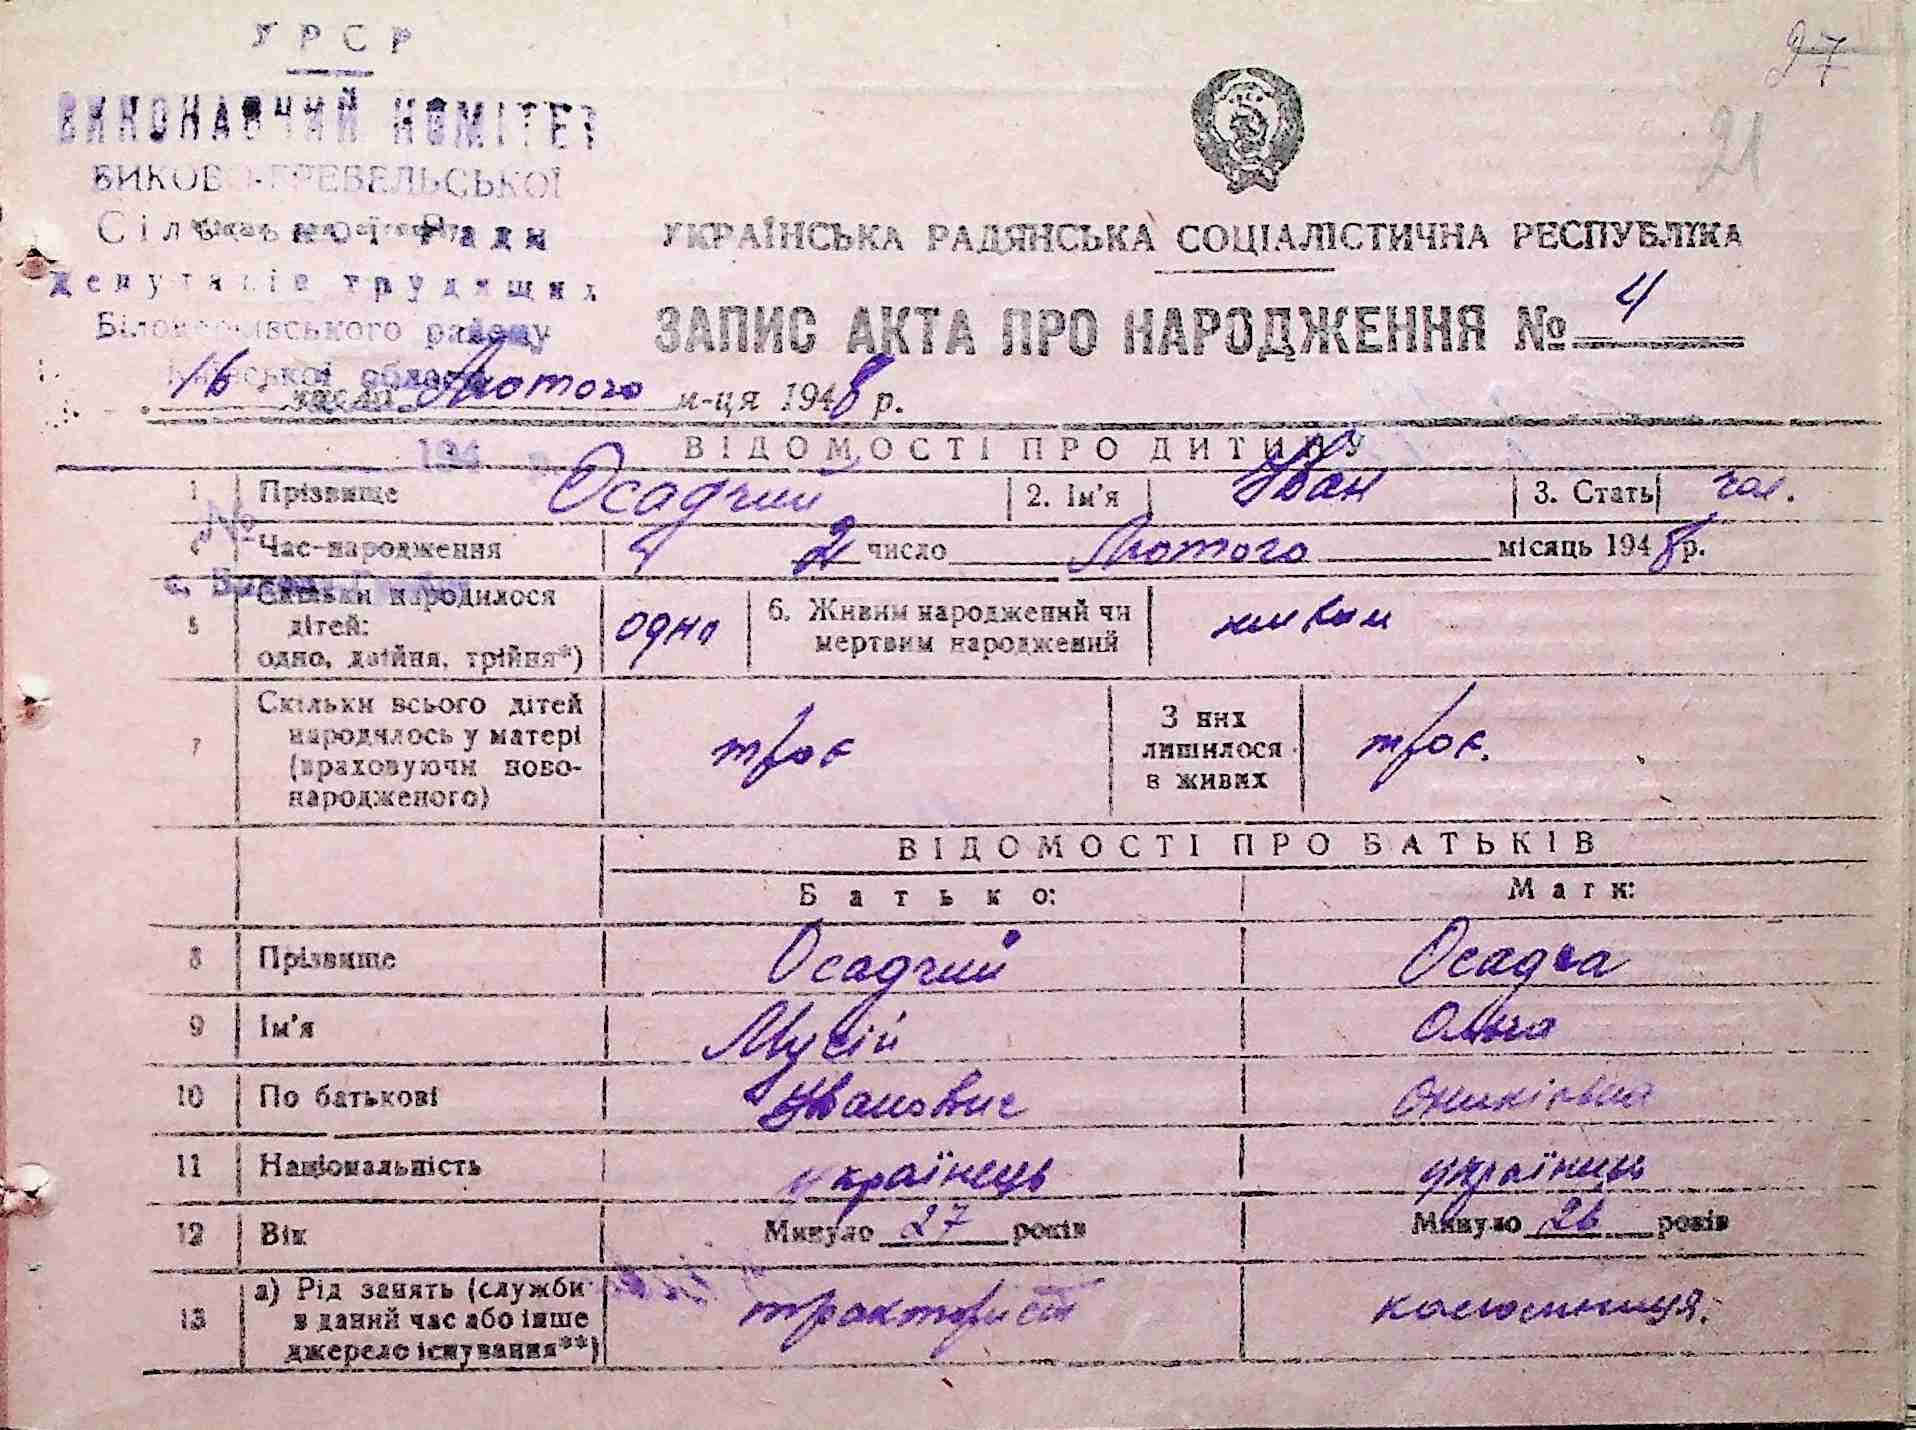 УРСР
27
ВИКОНАВЧИЙ КОМІТЕТ
21
БИКОВО-ГРЕБЕЛЬСЬКОЇ
Сільської Ради
УКРАЇНСЬКА РАДЯНСЬКА СОЦІАЛІСТИЧНА РЕСПУБЛІКА
депутатів трудящих
Білоцерківського району
ЗАПИС АКТА ПРО НАРОДЖЕННЯ № 4
Київської області
16 Лютого м-ця 1948 р.
194 р.
ВІДОМОСТІ ПРО ДИТИНУ
1 Прізвище Осадчий 2. Ім'я Іван 3. Стать чол.
№
4 Час народження 2 число Лютого місяць 1948 р.
с.
5 Скільки народилося дітей: одно, двійня, трійня*) одно 6. Живим народжений чи мертвим народжений живим
7 Скільки всього дітей народилось у матері (враховуючи новонародженого) троє З них лишилося в живих троє.
ВІДОМОСТІ ПРО БАТЬКІВ
Батько: Мати:
8 Прізвище Осадчий Осадча
9 Ім'я Мусій Ольга
10 По батькові Іванович Оникіївна
11 Національність українець українць
12 Вік Минуло 27 років Минуло 26 років
13 а) Рід занять (служби в даний час або інше джерело існування**) тракторист колгоспниця.